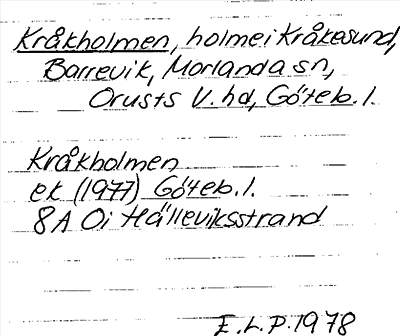 Kråkholmen, holme i Kråkesund,
Barrevik, Morlanda sn,
Orusts V. hd, Göteb. l.
Kråkholmen
ek (1977) Göteb. l.
8A 0i Hälleviksstrand
E. L. P 1978